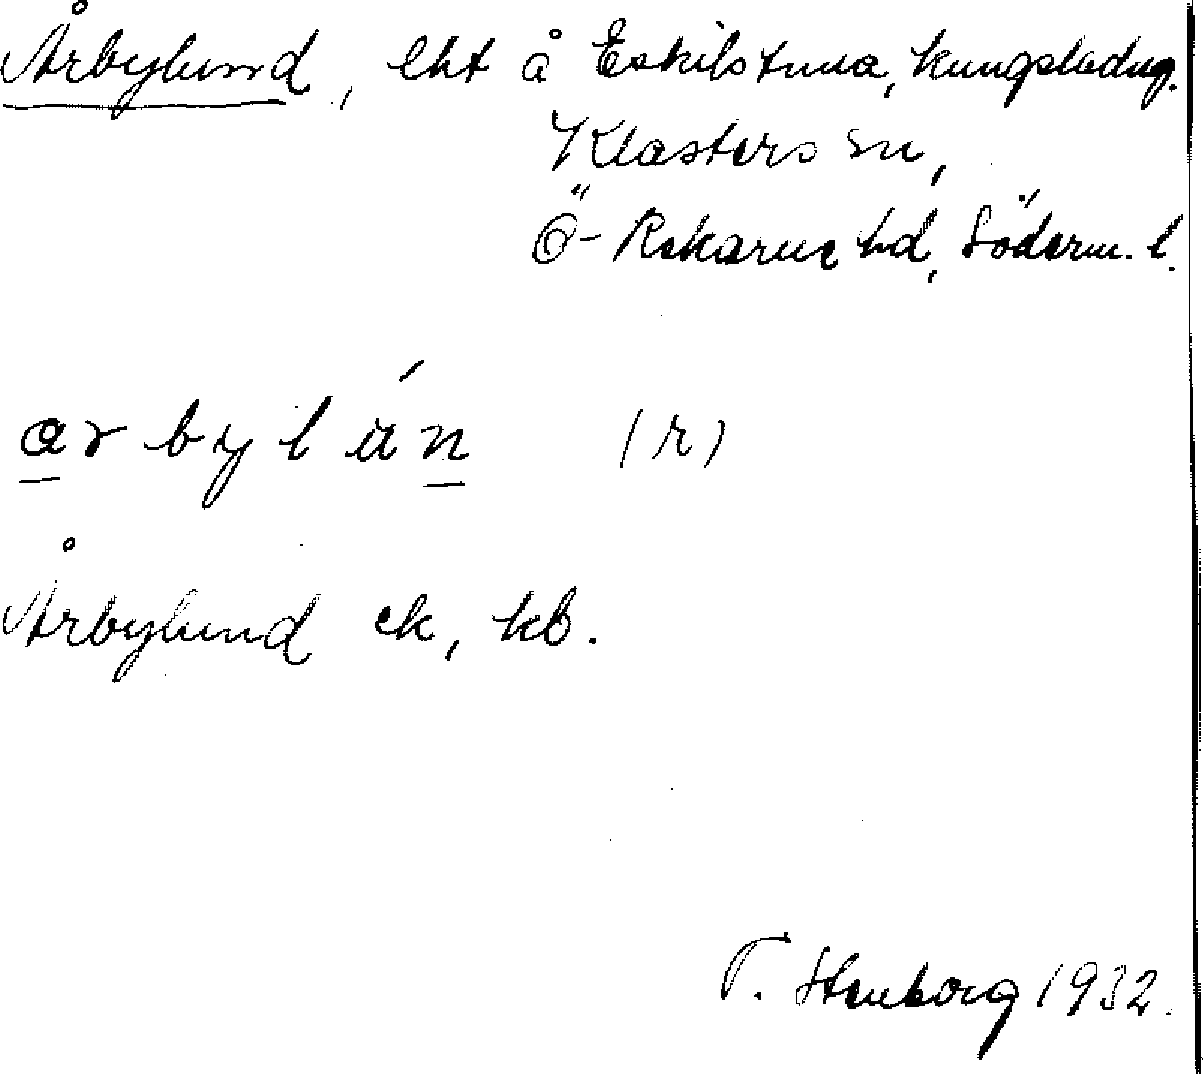 Årbylund, lht å Eskilstuna, kungsladug.
Klosters sn,
Ö-Rekarne hd, Söderm. l.
arbylún (r)
Årbylund ek, kb.
T. Stenborg 1932.